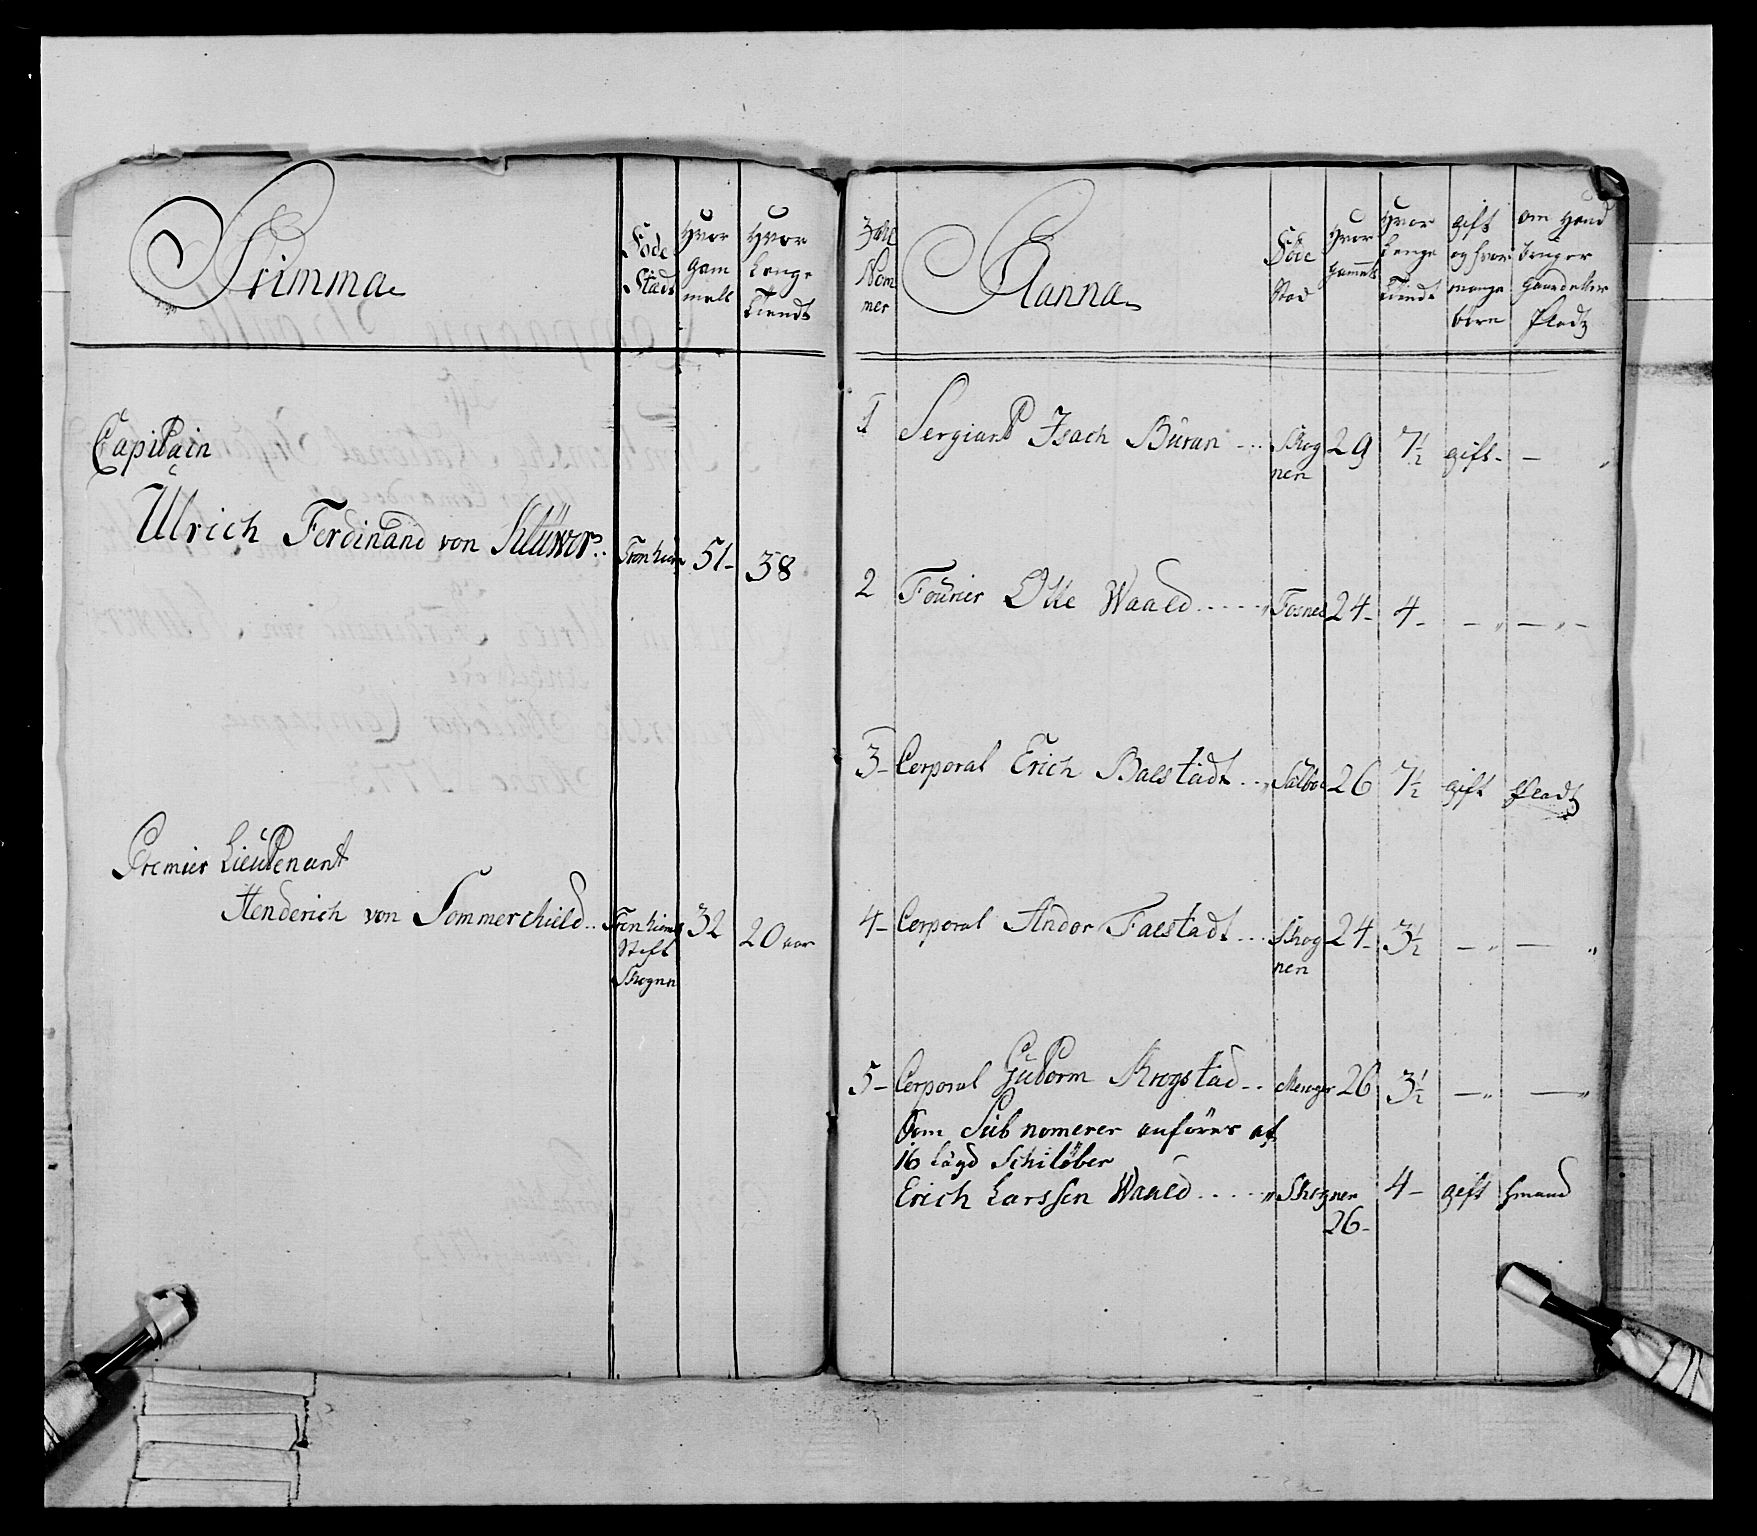 Primma
Föde Stads
Hvor gam melt
Hvor Lenge Tiendt
Capitain
Ulrich Ferdinand von Klüwer.. Tronhiem 51- 38
Premier Lieutenant
Henderich von Sommerchield.. Tronhiems 32 20 aar
Stift
Skognen
Zahl Nom mer
Planna
Föde Stad
Hvor gammel
Hvor Lenge Tiendt
gift og hvor mange börn
om Hand bruger Gaard eller Pladz
1 Sergiant Isach Buran .... Skog 29 7½ gift - —
nen
2 Fourier Otte Waald ..... Fosnes 24- 4- — „ — „ —
3- Corporal Erich Balstadt ... Sälboe 26 7½ gift Pladz
4- Corporal Andor Falstadt ... Skog 24- 3½ — „ — „
nen
5- Corporal Gutorm Krogstad .. 26 3½ — „ — „
Som Sub nomerer anföres af
16 Lägd Schilöber
Erich Larssen Waald ..... „ Skognen 4- gift Hmand
26-